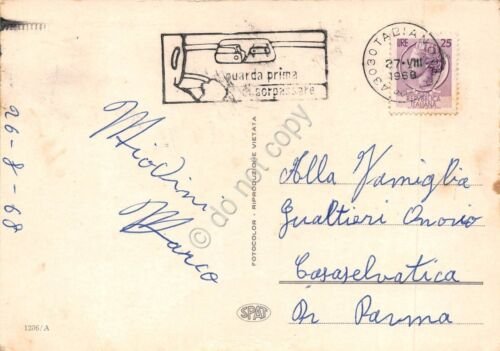 guarda prima
di sorpassare
43030 TABIANO
27·VIII
1968
LIRE 25
REPUBBLICA
ITALIANA
26-8-68
Marco
FOTOCOLOR - RIPRODUZIONE VIETATA
do not copy
Alla Famiglia
Gualtieri Onorio
Casaselvatica
Di Parma
SPAT
1206/A